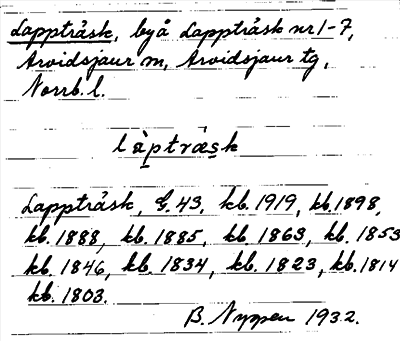 Lappträsk, byå Lappträsk nr 1-7,
Arvidsjaur sn, Arvidsjaur tg,
Norrb. l.
làptrǽsk
Lappträsk, G. 43, kb. 1919, kb. 1898,
kb. 1888, kb. 1885, kb. 1863, kb. 1853
kb. 1846, kb. 1834, kb. 1823, kb. 1814
kb. 1803.
B. Nyppen 1932.